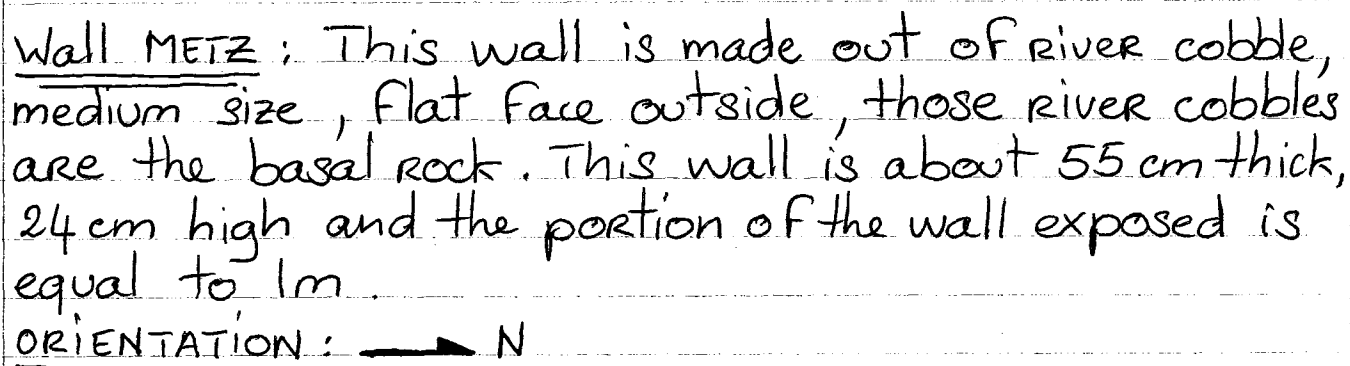 Wall METZ : This wall is made out of River cobble,
medium size, flat face outside, those River cobbles
are the basal Rock. This wall is about 55 cm thick,
24 cm high and the portion of the wall exposed is
equal to 1m.
ORIENTATION : → N